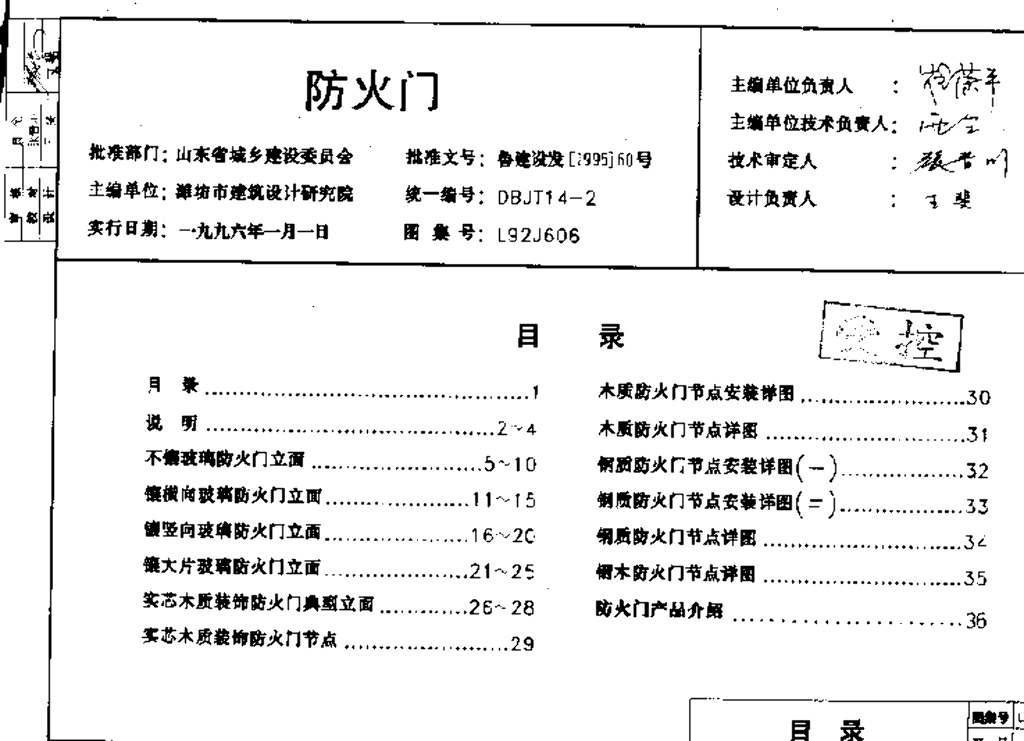 防火门
批准部门：山东省城乡建设委员会
主编单位：潍坊市建筑设计研究院
实行日期：一九九六年一月一日
批准文号：鲁建设发[1995]60号
统一编号：DBJT14-2
图 集 号：L92J606
主编单位负责人：
主编单位技术负责人：
技术审定人：
设计负责人：王斐
目 录
受控
目 录 1
说 明 2~4
不镶玻璃防火门立面 5~10
镶横向玻璃防火门立面 11~15
镶竖向玻璃防火门立面 16~20
镶大片玻璃防火门立面 21~25
实芯木质装饰防火门典型立面 26~28
实芯木质装饰防火门节点 29
木质防火门节点安装详图 30
木质防火门节点详图 31
钢质防火门节点安装详图(一) 32
钢质防火门节点安装详图(二) 33
钢质防火门节点详图 34
钢木防火门节点详图 35
防火门产品介绍 36
目 录
图集号
审核
校对
设计